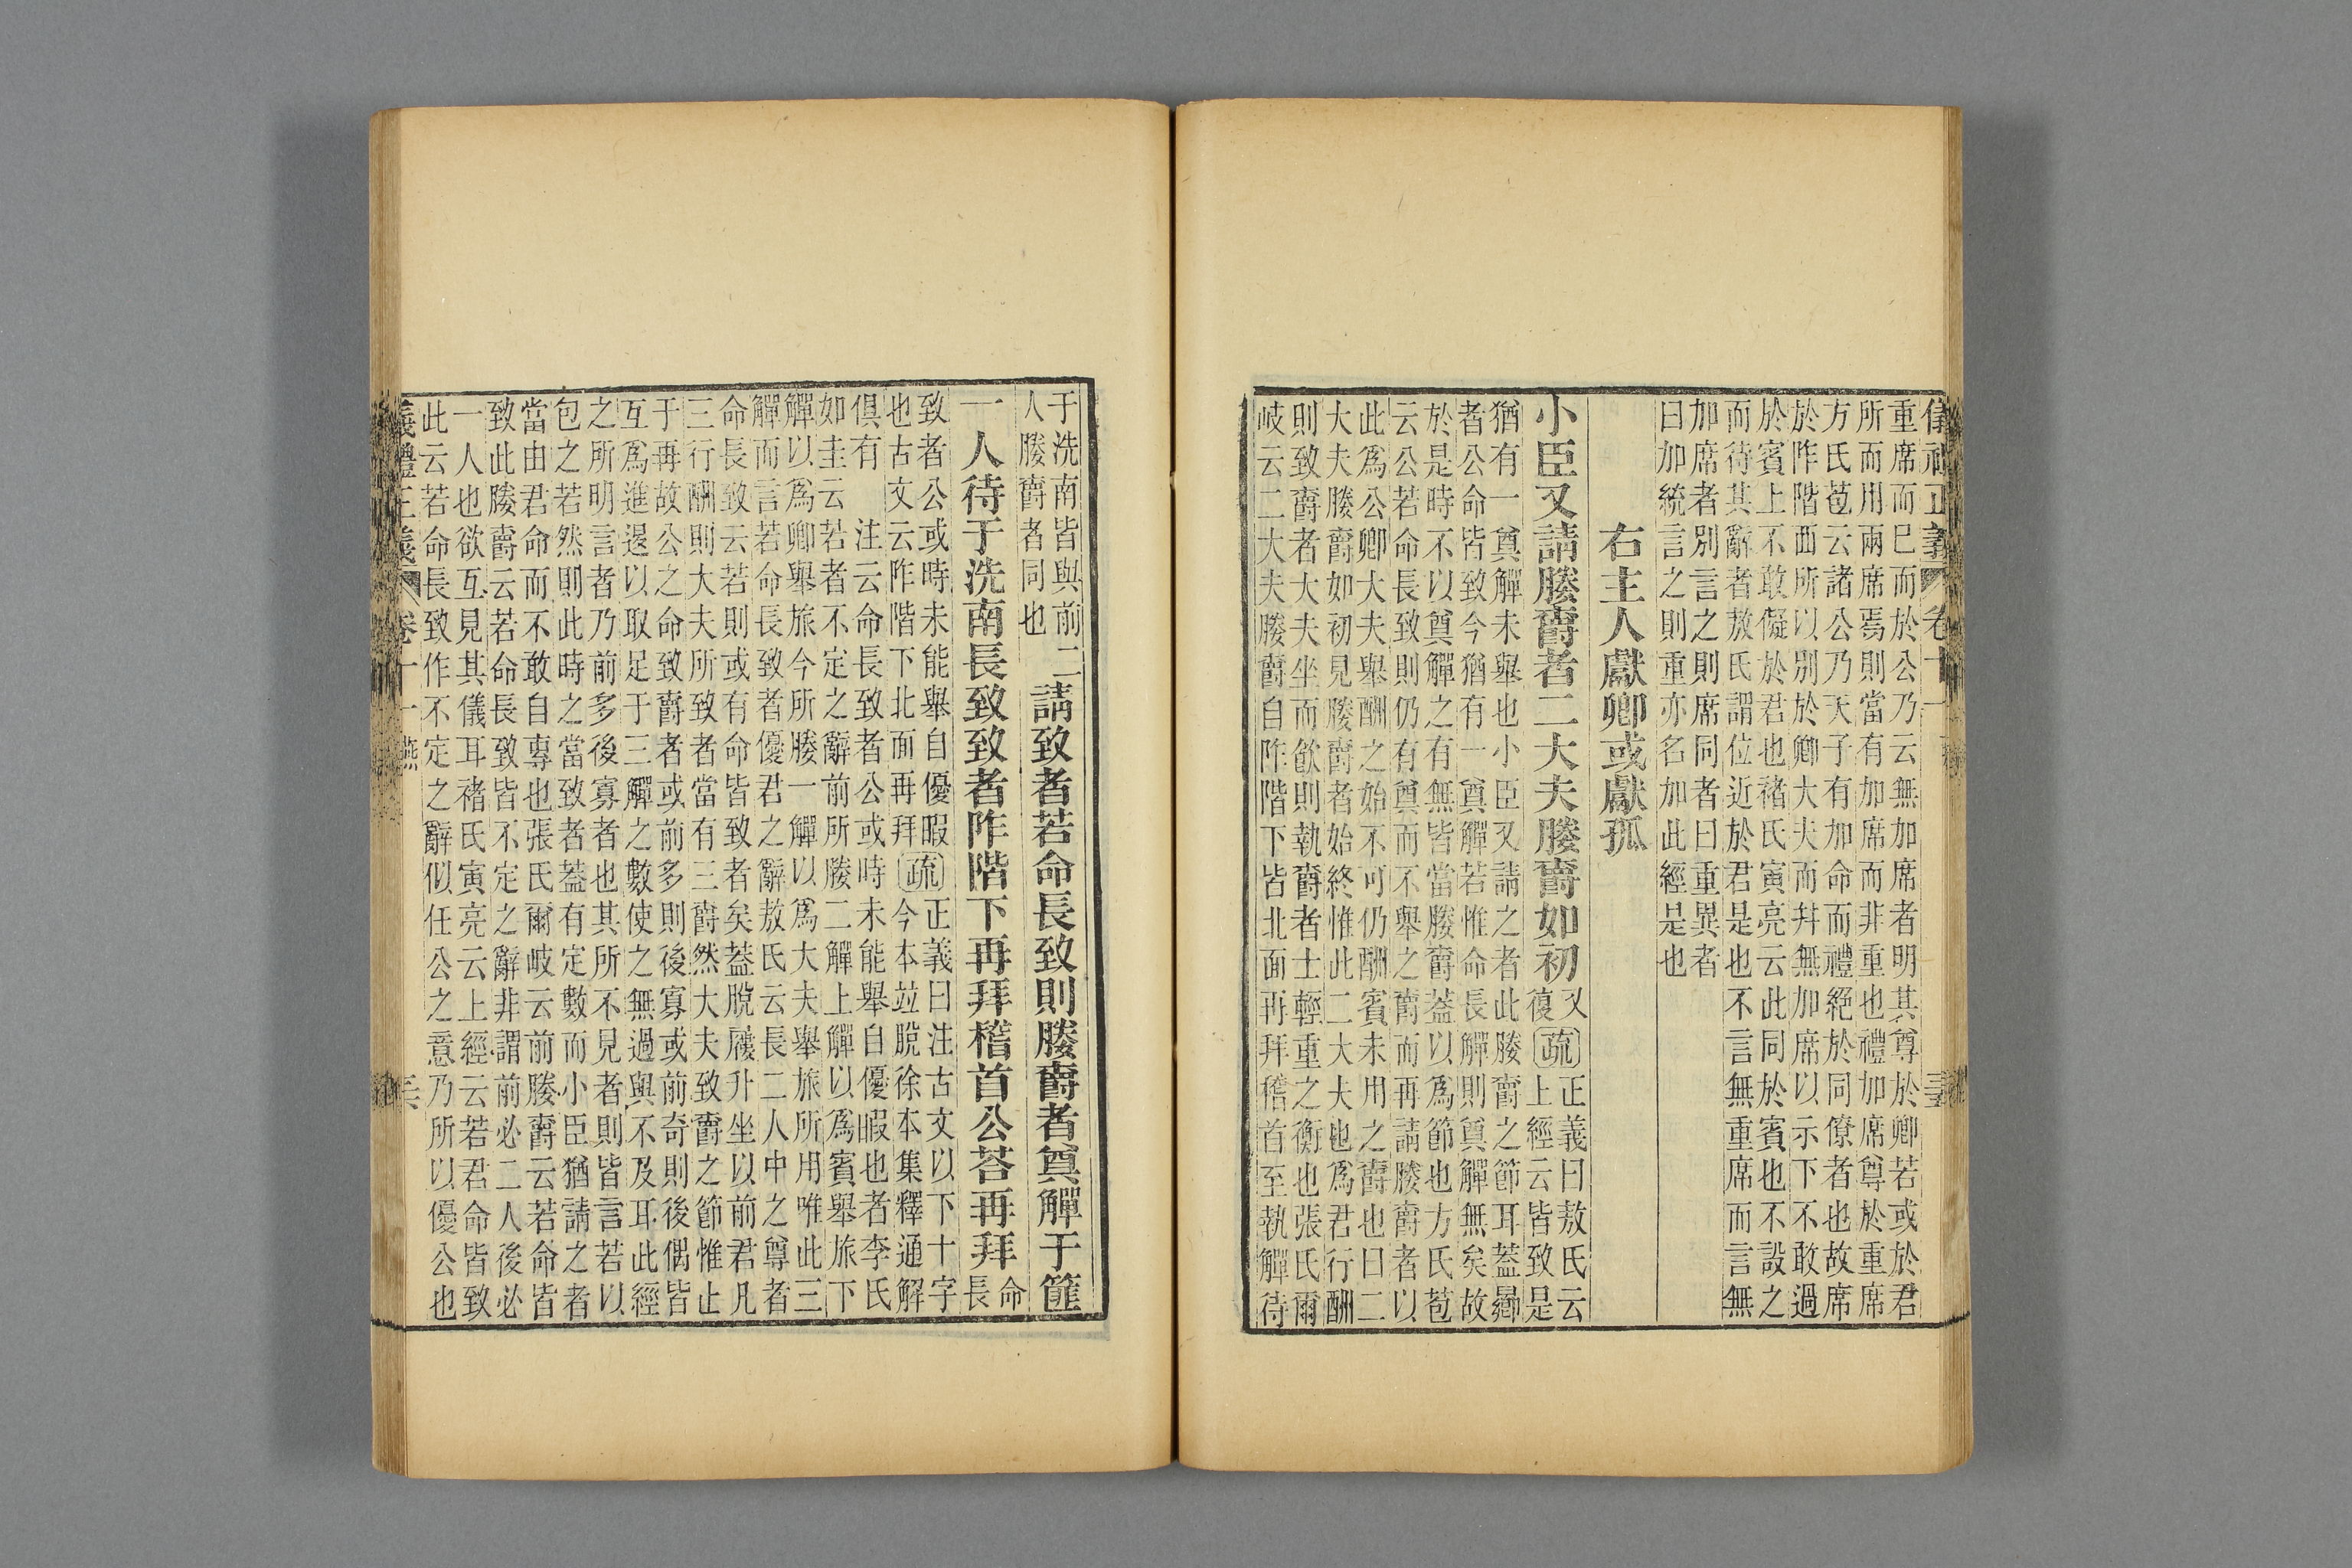 儀禮正義 卷十一
重席而已而於公乃云無加席者明其尊於卿若或於君
所而用兩席焉則當有加席而非重也禮加席尊於重席
方氏苞云諸公乃天子有加命而禮絕於同僚者也故席
於阼階西所以別於卿大夫而幷無加席以示下不敢過
於賓上不敢儗於君也褚氏寅亮云此同於賓也不設之
而待其辭者敖氏謂位近於君是也不言無重席而言無
加席者別言之則席同者曰重異者
曰加統言之則重亦名加此經是也
右主人獻卿或獻孤
小臣又請媵爵者二大夫媵爵如初
又
復
疏
正義曰敖氏云
上經云皆致是
猶有一奠觶未舉也小臣又請之者此媵爵之節耳蓋曏
者公命皆致今猶有一奠觶若惟命長觶則奠觶無矣故
於是時不以奠觶之有無皆當媵爵蓋以爲節也方氏苞
云公若命長致則仍有奠而不舉之爵而再請媵爵者以
此爲公卿大夫舉酬之始不可仍酬賓未用之爵也曰二
大夫媵爵如初見媵爵者始終惟此二大夫也爲君行酬
則致爵者大夫坐而飮則執爵者士輕重之衡也張氏爾
岐云二大夫媵爵自阼階下皆北面再拜稽首至執觶待
于洗南皆與前二
人媵爵者同也
請致者若命長致則媵爵者奠觶于篚
一人待于洗南長致致者阼階下再拜稽首公荅再拜
命
長
致者公或時未能舉自優暇
也古文云阼階下北面再拜
疏
正義曰注古文以下十字
今本竝脫徐本集釋通解
俱有 注云命長致者公或時未能舉自優暇也者李氏
如圭云若者不定之辭前所媵二觶上觶以爲賓舉旅下
觶以爲卿舉旅今所媵一觶以爲大夫舉旅所用唯此三
觶而言若命長致者優君之辭敖氏云長二人中之尊者
命長致云若則或有命皆致者矣蓋脫屨升坐以前君凡
三行酬則大夫所致者當有三爵然大夫致爵之節惟止
于再故公之命致爵者或前多則後寡或前奇則後偶皆
互爲進退以取足于三觶之數使之無過與不及耳此經
之所明言者乃前多後寡者也其所不見者則皆言若以
包之若然則此時之當致者蓋有定數而小臣猶請之者
當由君命而不敢自專也張氏爾岐云前媵爵云若命皆
致此媵爵云若命長致皆不定之辭非謂前必二人後必
一人也欲互見其儀耳褚氏寅亮云上經云若君命皆致
此云若命長致作不定之辭似任公之意乃所以優公也
義禮正義 卷十一 燕